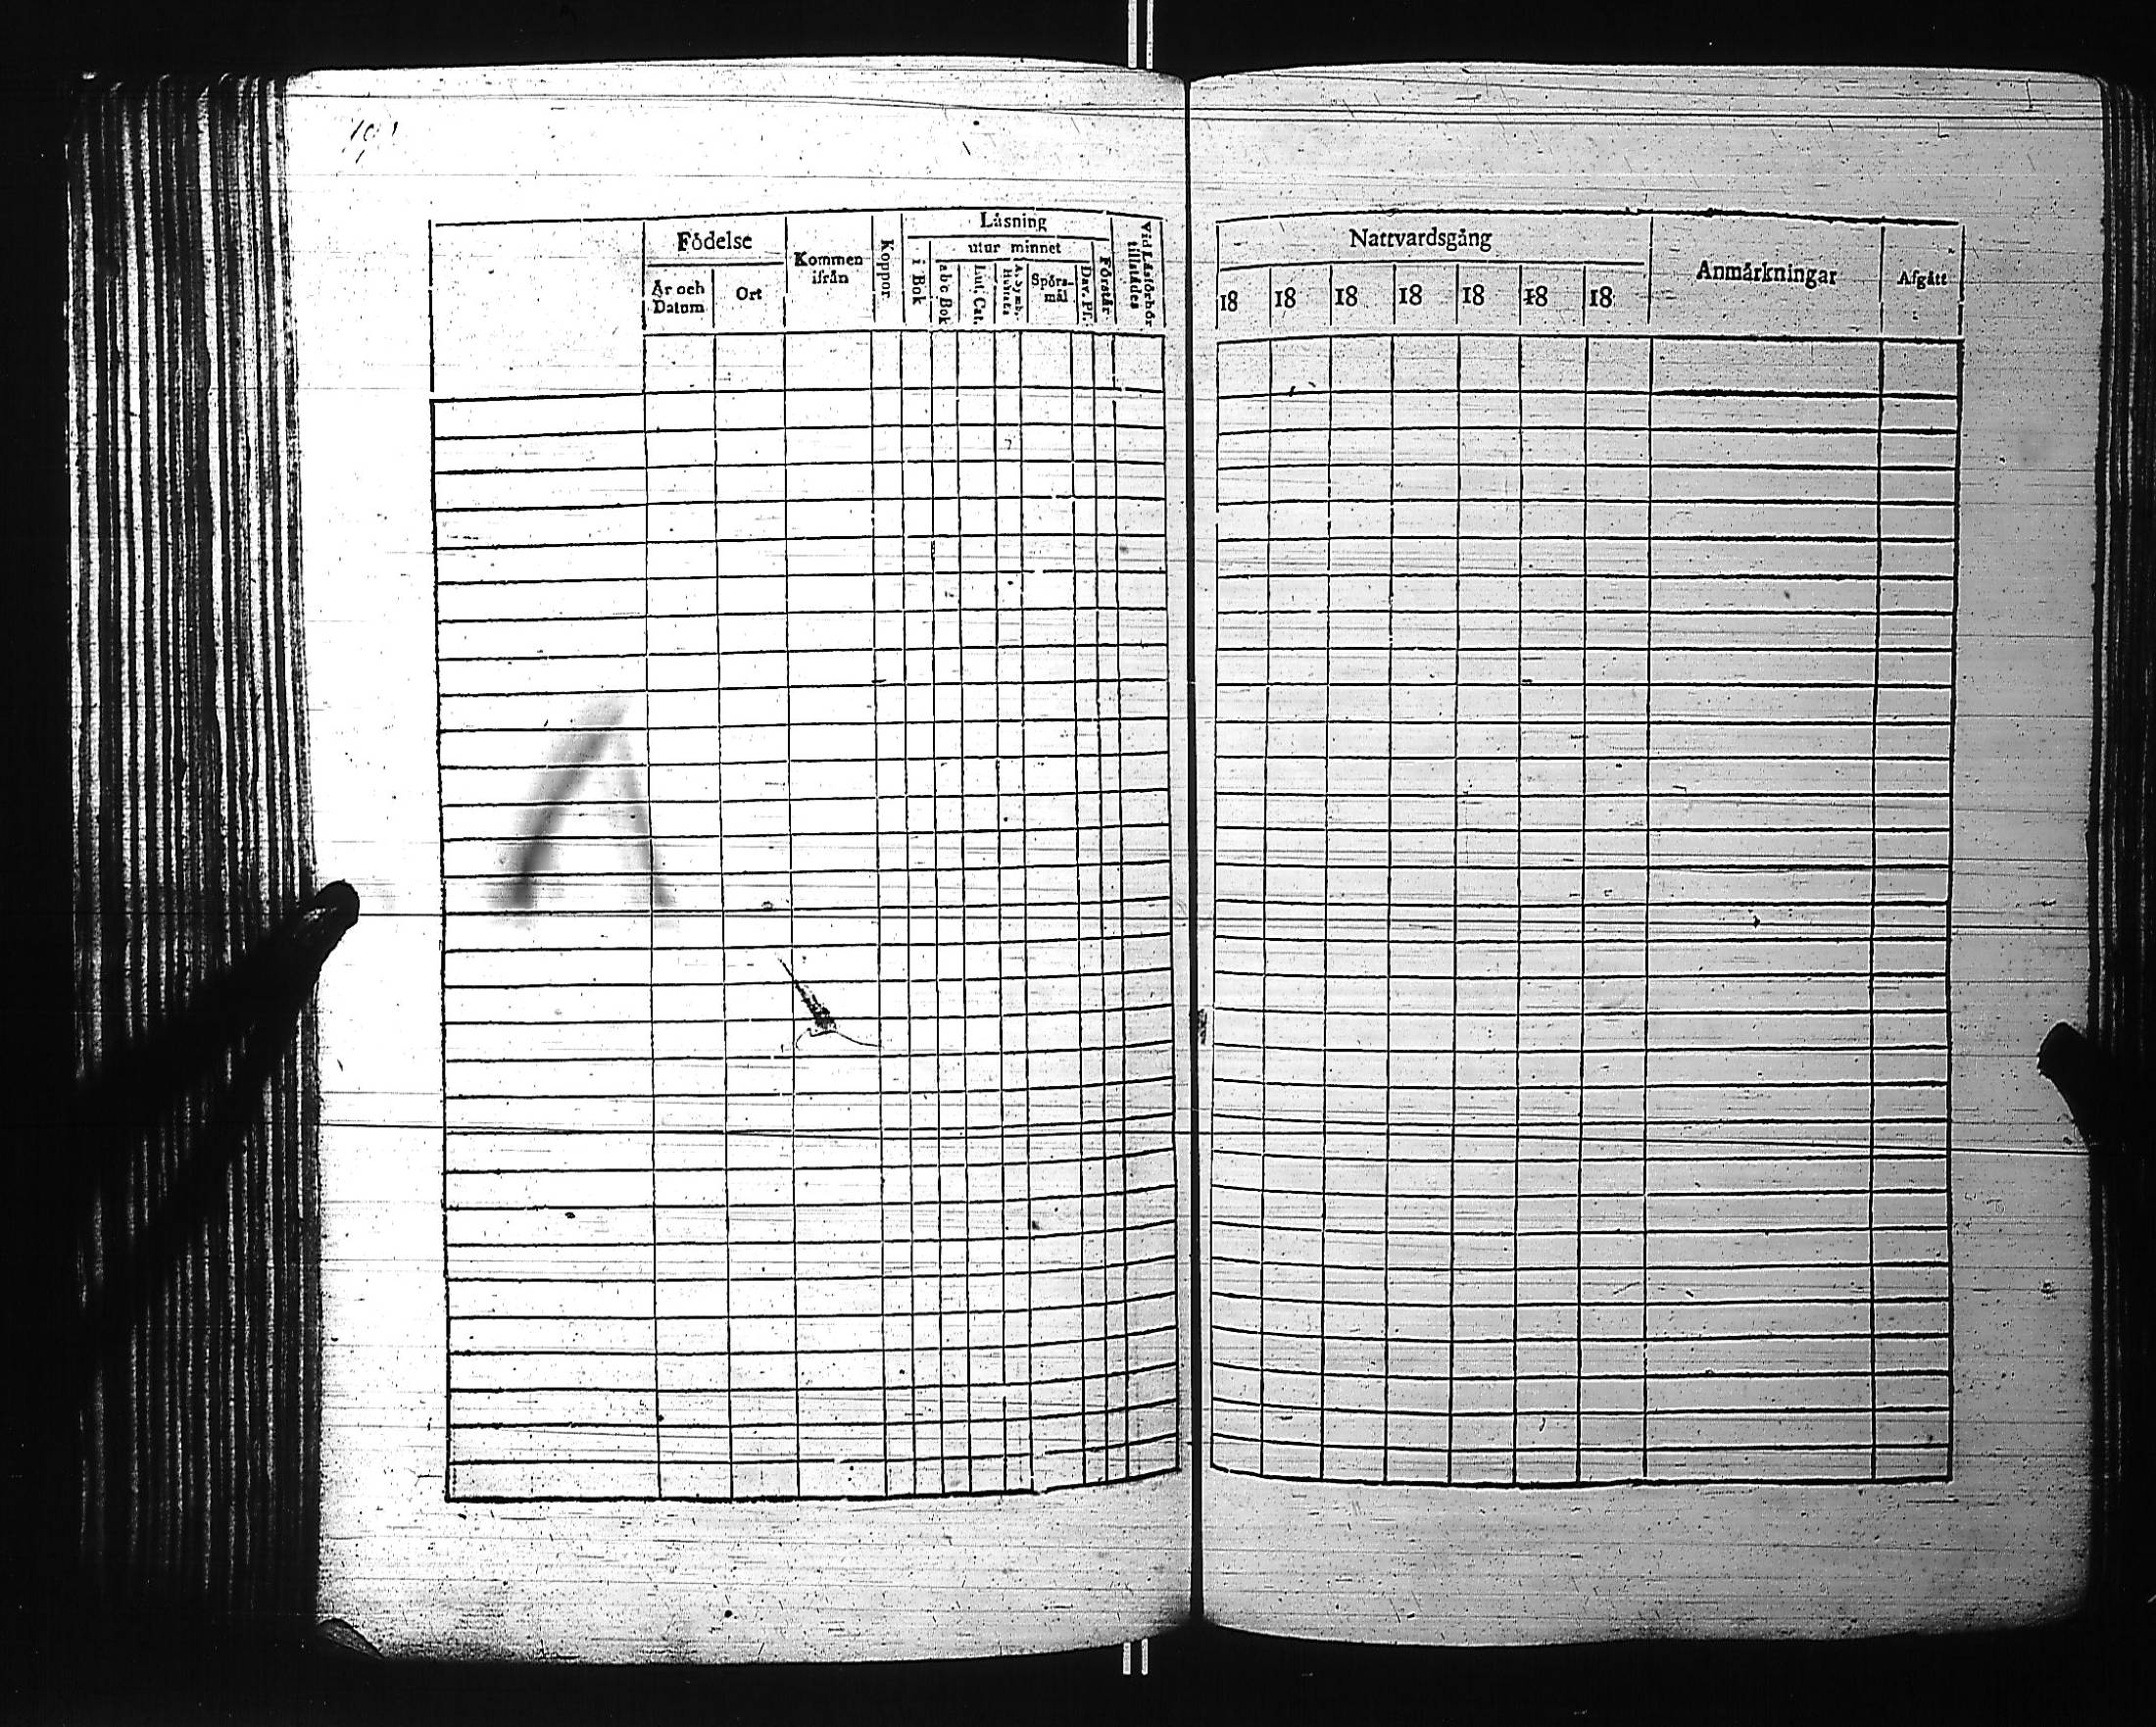 Födelse
År och Datum
Ort
Kommen ifrån
Koppor
Läsning
i Bok
utur minnet
abc Bok
Lut. Cat.
A. Symb.
Hustafla
Spörs-
mål
Dav. Ps.
Förstår
Vid Läsförhör
tillstädes
Nattvardsgång
18 18 18 18 18 18 18
Anmärkningar
Afgått